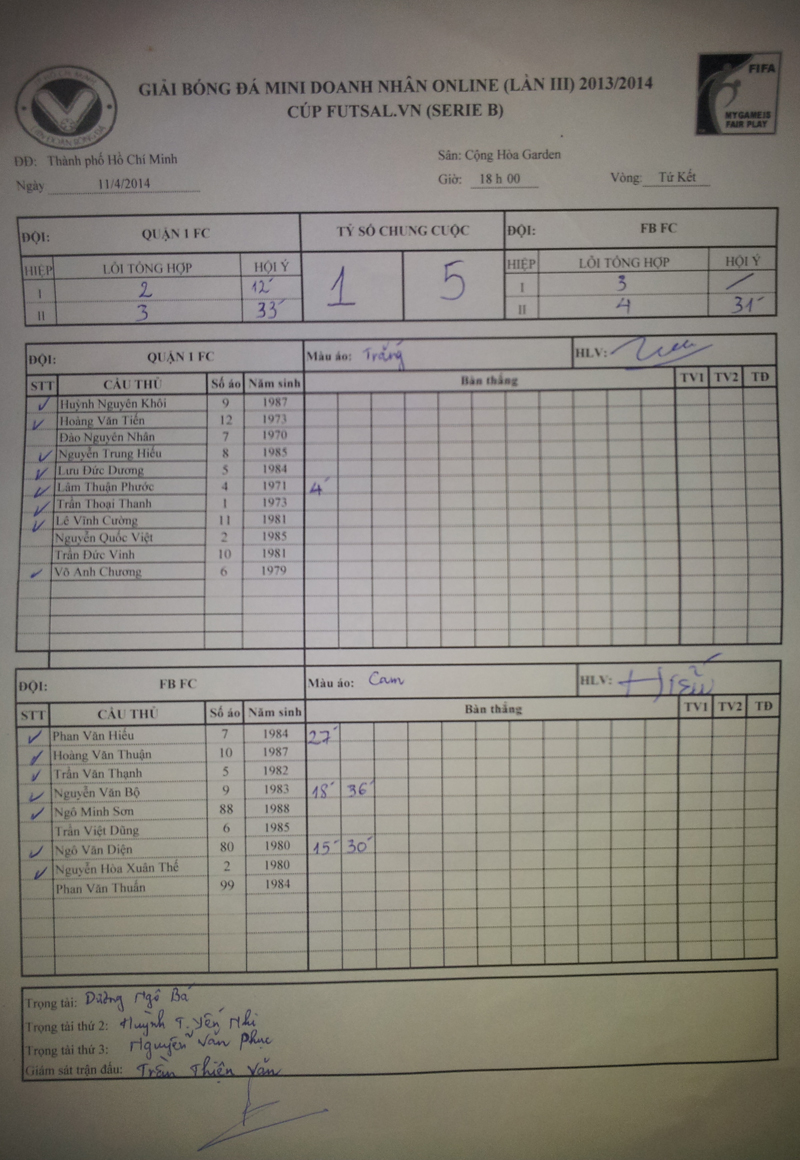 GIẢI BÓNG ĐÁ MINI DOANH NHÂN ONLINE (LẦN III) 2013/2014
CÚP FUTSAL.VN (SERIE B)
FIFA
MY GAME IS
FAIR PLAY
ĐĐ: Thành phố Hồ Chí Minh
Sân: Cộng Hòa Garden
Ngày 11/4/2014
Giờ: 18 h 00 Vòng: Tứ Kết
ĐỘI: QUẬN 1 FC TỶ SỐ CHUNG CUỘC ĐỘI: FB FC
HIỆP LỖI TỔNG HỢP HỘI Ý 1 5 HIỆP LỖI TỔNG HỢP HỘI Ý
I 2 12' I 3 /
II 3 33' II 4 31'
ĐỘI: QUẬN 1 FC Màu áo: Trắng HLV:
STT CẦU THỦ Số áo Năm sinh Bàn thắng TV1 TV2 TĐ
✓ Huỳnh Nguyên Khôi 9 1987
✓ Hoàng Văn Tiến 12 1973
Đào Nguyên Nhân 7 1970
✓ Nguyễn Trung Hiếu 8 1985
✓ Lưu Đức Dương 5 1984
✓ Lâm Thuận Phước 4 1971 4'
✓ Trần Thoại Thanh 1 1973
✓ Lê Vĩnh Cường 11 1981
Nguyễn Quốc Việt 2 1985
Trần Đức Vinh 10 1981
✓ Võ Anh Chương 6 1979
ĐỘI: FB FC Màu áo: Cam HLV: Hiếu
STT CẦU THỦ Số áo Năm sinh Bàn thắng TV1 TV2 TĐ
✓ Phan Văn Hiếu 7 1984 27'
✓ Hoàng Văn Thuận 10 1987
✓ Trần Văn Thạnh 5 1982
✓ Nguyễn Văn Bộ 9 1983 18' 36'
✓ Ngô Minh Sơn 88 1988
Trần Việt Dũng 6 1985
✓ Ngô Văn Diện 80 1980 15' 30'
✓ Nguyễn Hòa Xuân Thế 2 1980
Phan Văn Thuấn 99 1984
Trọng tài: Dương Ngô Bá
Trọng tài thứ 2: Huỳnh T. Yến Nhi
Trọng tài thứ 3: Nguyễn Văn Phục
Giám sát trận đấu: Trần Thiện Văn